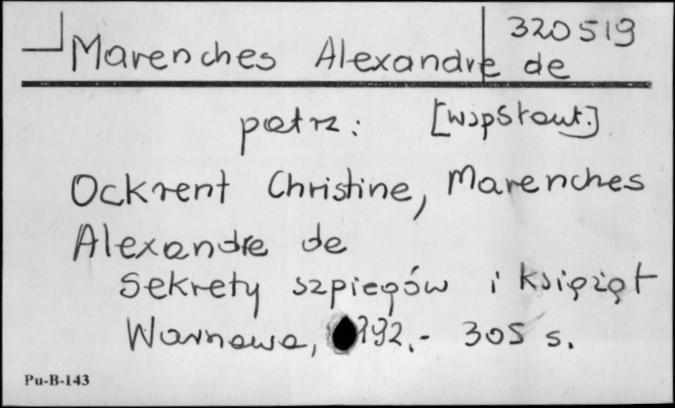 320519
Marenches Alexandre de
patrz: [współaut.]
Ockrent Christine, Marenches
Alexandre de
Sekrety szpiegów i książąt
Warszawa, 1992.- 305 s.
Pu-B-143